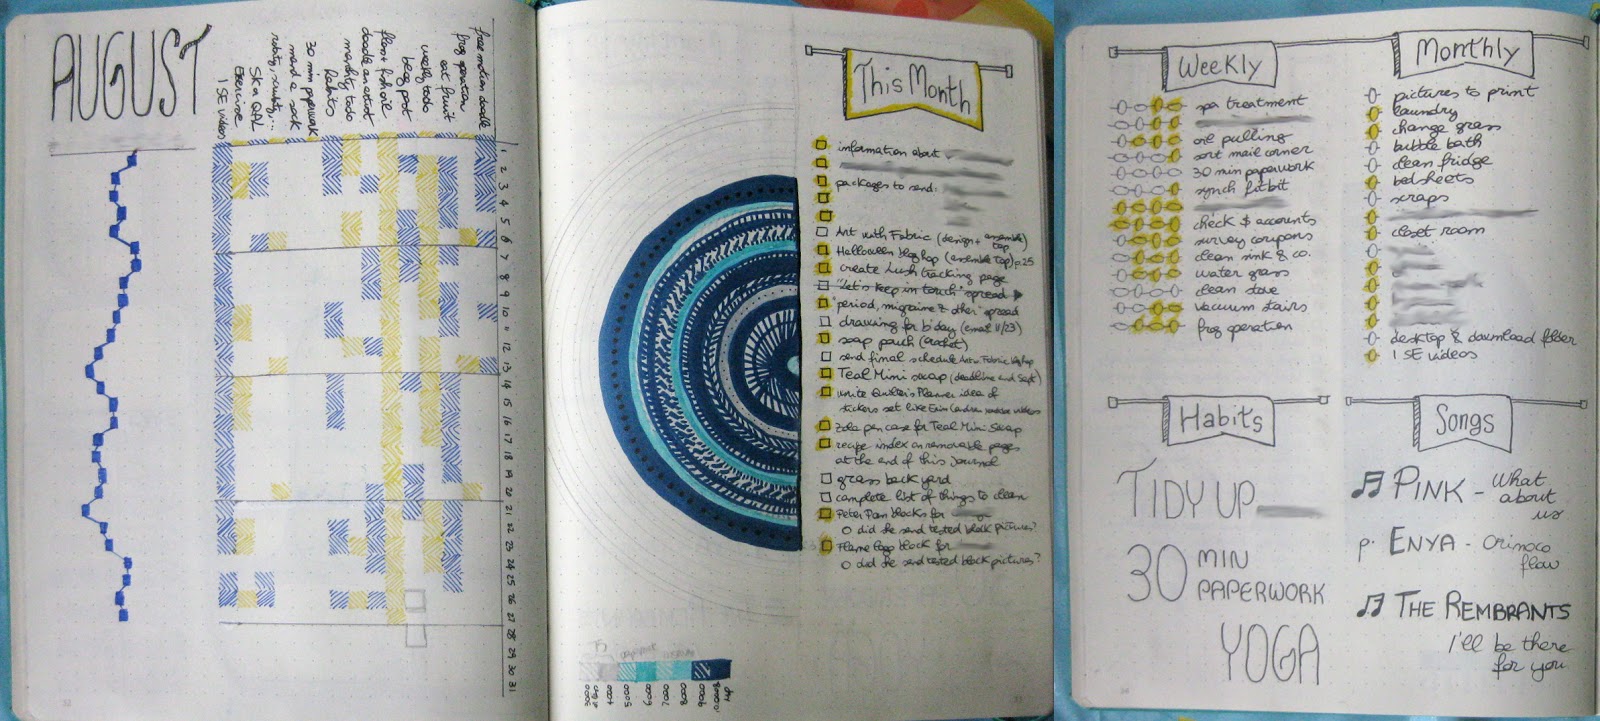 AUGUST
free motion doodle
frog operation
eat fruit
weekly todo
blog post
flam + fish oil
doodle an artist
monthly todo
Rabits
30 min paperwork
mend a sock
Ska QAL
Exercise
1 SE videos
1
2
3
4
5
6
7
8
9
10
11
12
13
14
15
16
17
18
19
20
21
22
23
24
25
26
27
28
29
30
31
This Month
information about
packages to send:
Art with Fabric (design + assemble top)
Halloween blog hop (assemble top) p.25
create Lush tracking page
"Let's keep in touch" spread
"period, migraine & other" spread
drawing for b'day (email 11/23)
soap pouch (crochet)
send final schedule Art w Fabric blog hop
Teal Mini swap (deadline end Sept)
write Quilter's Planner idea of
stickers set like Erin Condren youtube videos
Zola pen case for Teal Mini Swap
recipe index on removable pages
at the end of this journal
grass back yard
complete list of things to clean
Peter Pan blocks for
o did he send tested block pictures?
Flame logo block for
o did he send tested block pictures?
Weekly
spa treatment
oil pulling
sort mail corner
30 min paperwork
synch fitbit
check $ accounts
survey coupons
clean sink & co.
water grass
clean stove
vacuum stairs
frog operation
Monthly
pictures to print
laundry
change grass
bubble bath
clean fridge
bedsheets
scraps
closet room
desktop & download folder
1 SE videos
Habits
TIDY UP
30 MIN
PAPERWORK
YOGA
Songs
PINK - What
about
us
p. ENYA - Orinoco
flow
THE REMBRANTS
I'll be there
for you